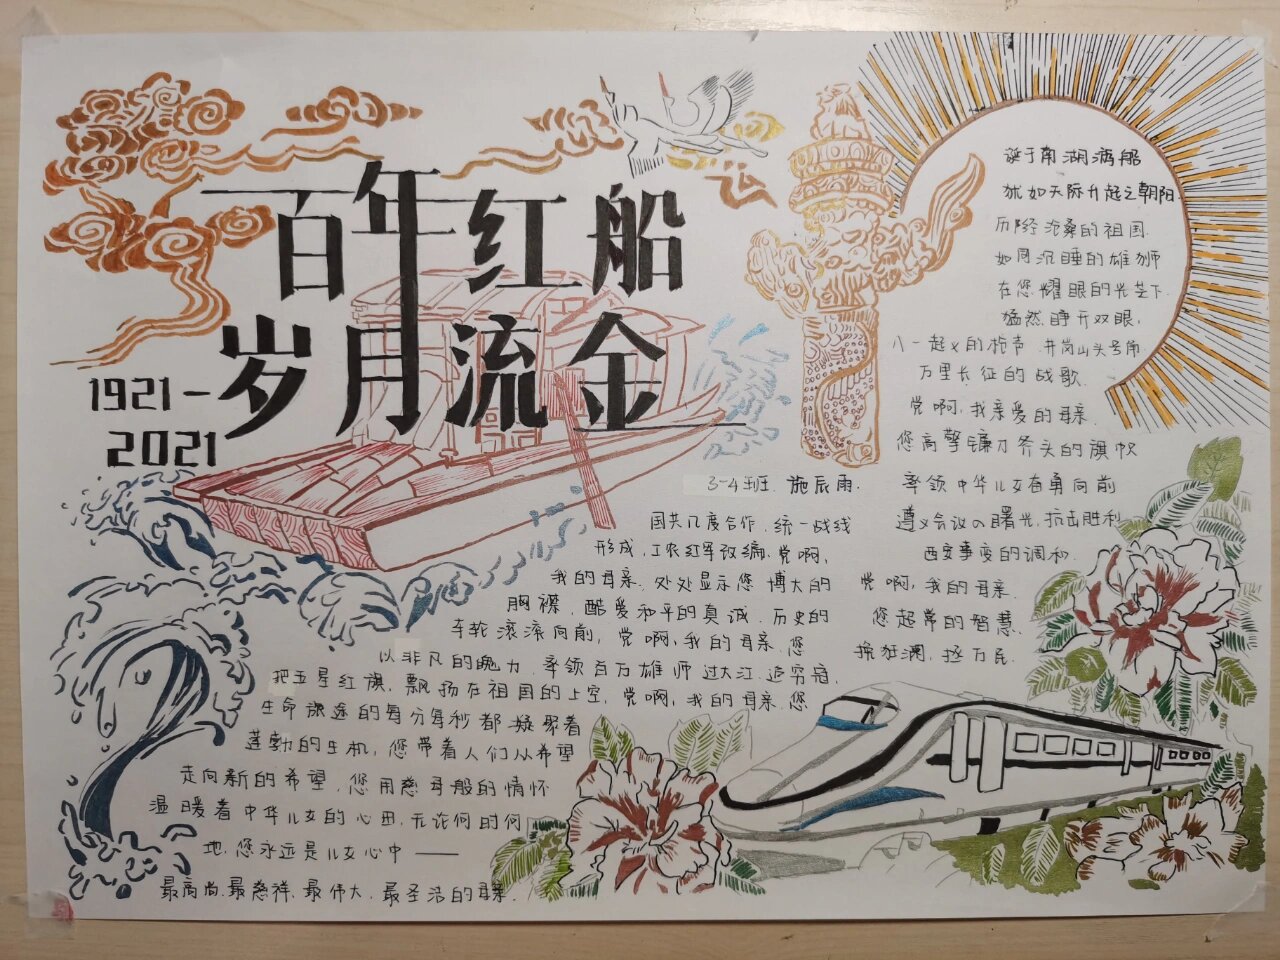 百年红船
岁月流金
1921-
2021
3-4班 施辰雨.
诞于南湖满船
犹如天际升起之朝阳.
历经沧桑的祖国.
如同沉睡的雄狮
在您耀眼的光芒下.
猛然睁开双眼,
八一起义的枪声 井岗山头号角
万里长征的战歌.
党啊,我亲爱的母亲.
您高擎镰刀斧头的旗帜
率领中华儿女奋勇向前
遵义会议の曙光,抗击胜利
西安事变的调和.
党啊,我的母亲.
您超常的智慧.
挽狂澜,拯万民.
国共几度合作.统一战线
形成,工农红军改编.党啊,
我的母亲.处处显示您博大的
胸襟,酷爱和平的真诚.历史的
车轮滚滚向前,党啊,我的母亲.您
以非凡的魄力.率领百万雄师过大江.追穷寇.
把五星红旗,飘扬在祖国的上空,党啊,我的母亲.您
生命旅途的每分每秒都凝聚着
蓬勃的生机,您带着人们从希望
走向新的希望,您用慈母般的情怀
温暖着中华儿女的心田,无论何时何
地.您永远是儿女心中——
最高尚.最慈祥.最伟大.最圣洁的母亲.